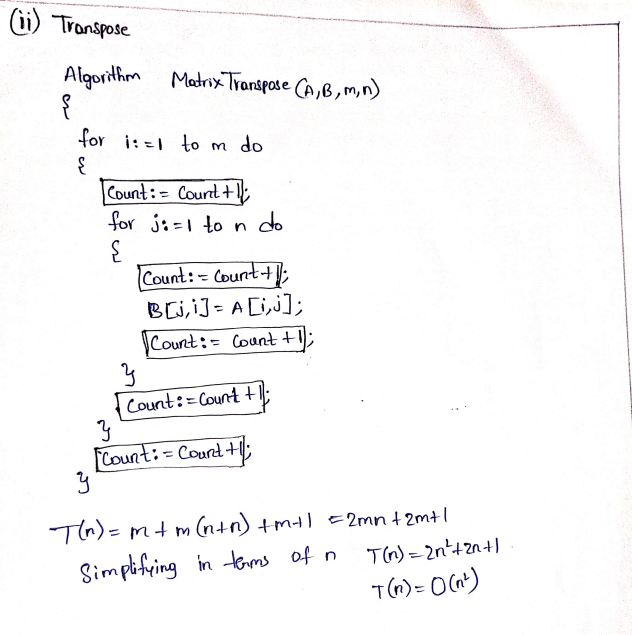 (ii) Transpose
Algorithm Matrix Transpose (A,B,m,n)
{
for i:=1 to m do
{
Count:= Count+1;
for j:=1 to n do
{
Count:= Count+1;
B[j,i]= A[i,j];
Count:= Count +1;
}
Count:=Count +1;
}
Count:= Count+1;
}
T(n)= m+m(n+n)+m+1 =2mn+2m+1
Simplifying in terms of n T(n)=2n²+2n+1
T(n)=O(n²)